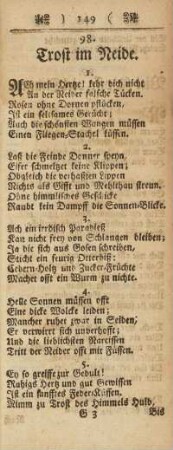 ) 149 (
98.
Trost im Neide.
1.
ACh mein Hertze! kehr dich nicht
An der Neider falsche Tücken,
Rosen ohne Dornen pflücken,
Ist ein seltsames Gerücht;
Auch die schönsten Wangen müssen
Einen Fliegen-Stachel küssen.
2.
Laß die Feinde Donner speyn,
Eifer schmeltzet keine Klippen;
Obgleich die verhaßten Lippen
Nichts als Gifft und Mehlthau streun.
Ohne himmlisches Geschicke
Raubt kein Dampff die Sonnen-Blicke.
3.
Ach ein irrdisch Paradieß
Kan nicht frey von Schlangen bleiben;
In die sich aus Gosen schreiben,
Sticht ein feurig Otterbiß:
Cedern-Holtz und Zucker-Früchte
Machet offt ein Wurm zu nichte.
4.
Helle Sonnen müssen offt
Eine dicke Wolcke leiden;
Mancher ruhet zwar in Seiden,
Er verwirrt sich unverhofft;
Und die lieblichsten Narcissen
Tritt der Neider offt mit Füssen.
5.
Ey so greiffe zur Gedult!
Ruhigs Hertz und gut Gewissen
Ist ein sanfftes Feder-Küssen.
Nimm zu Trost des Himmels Huld,
G 3 Bis